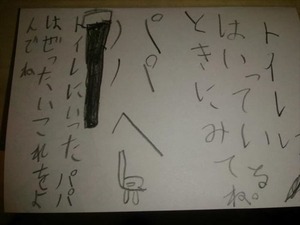 トイレに
はいっている。
ときにみてね。
パパへ
トイレにいったパパ
はぜったいこれをよ
んでね